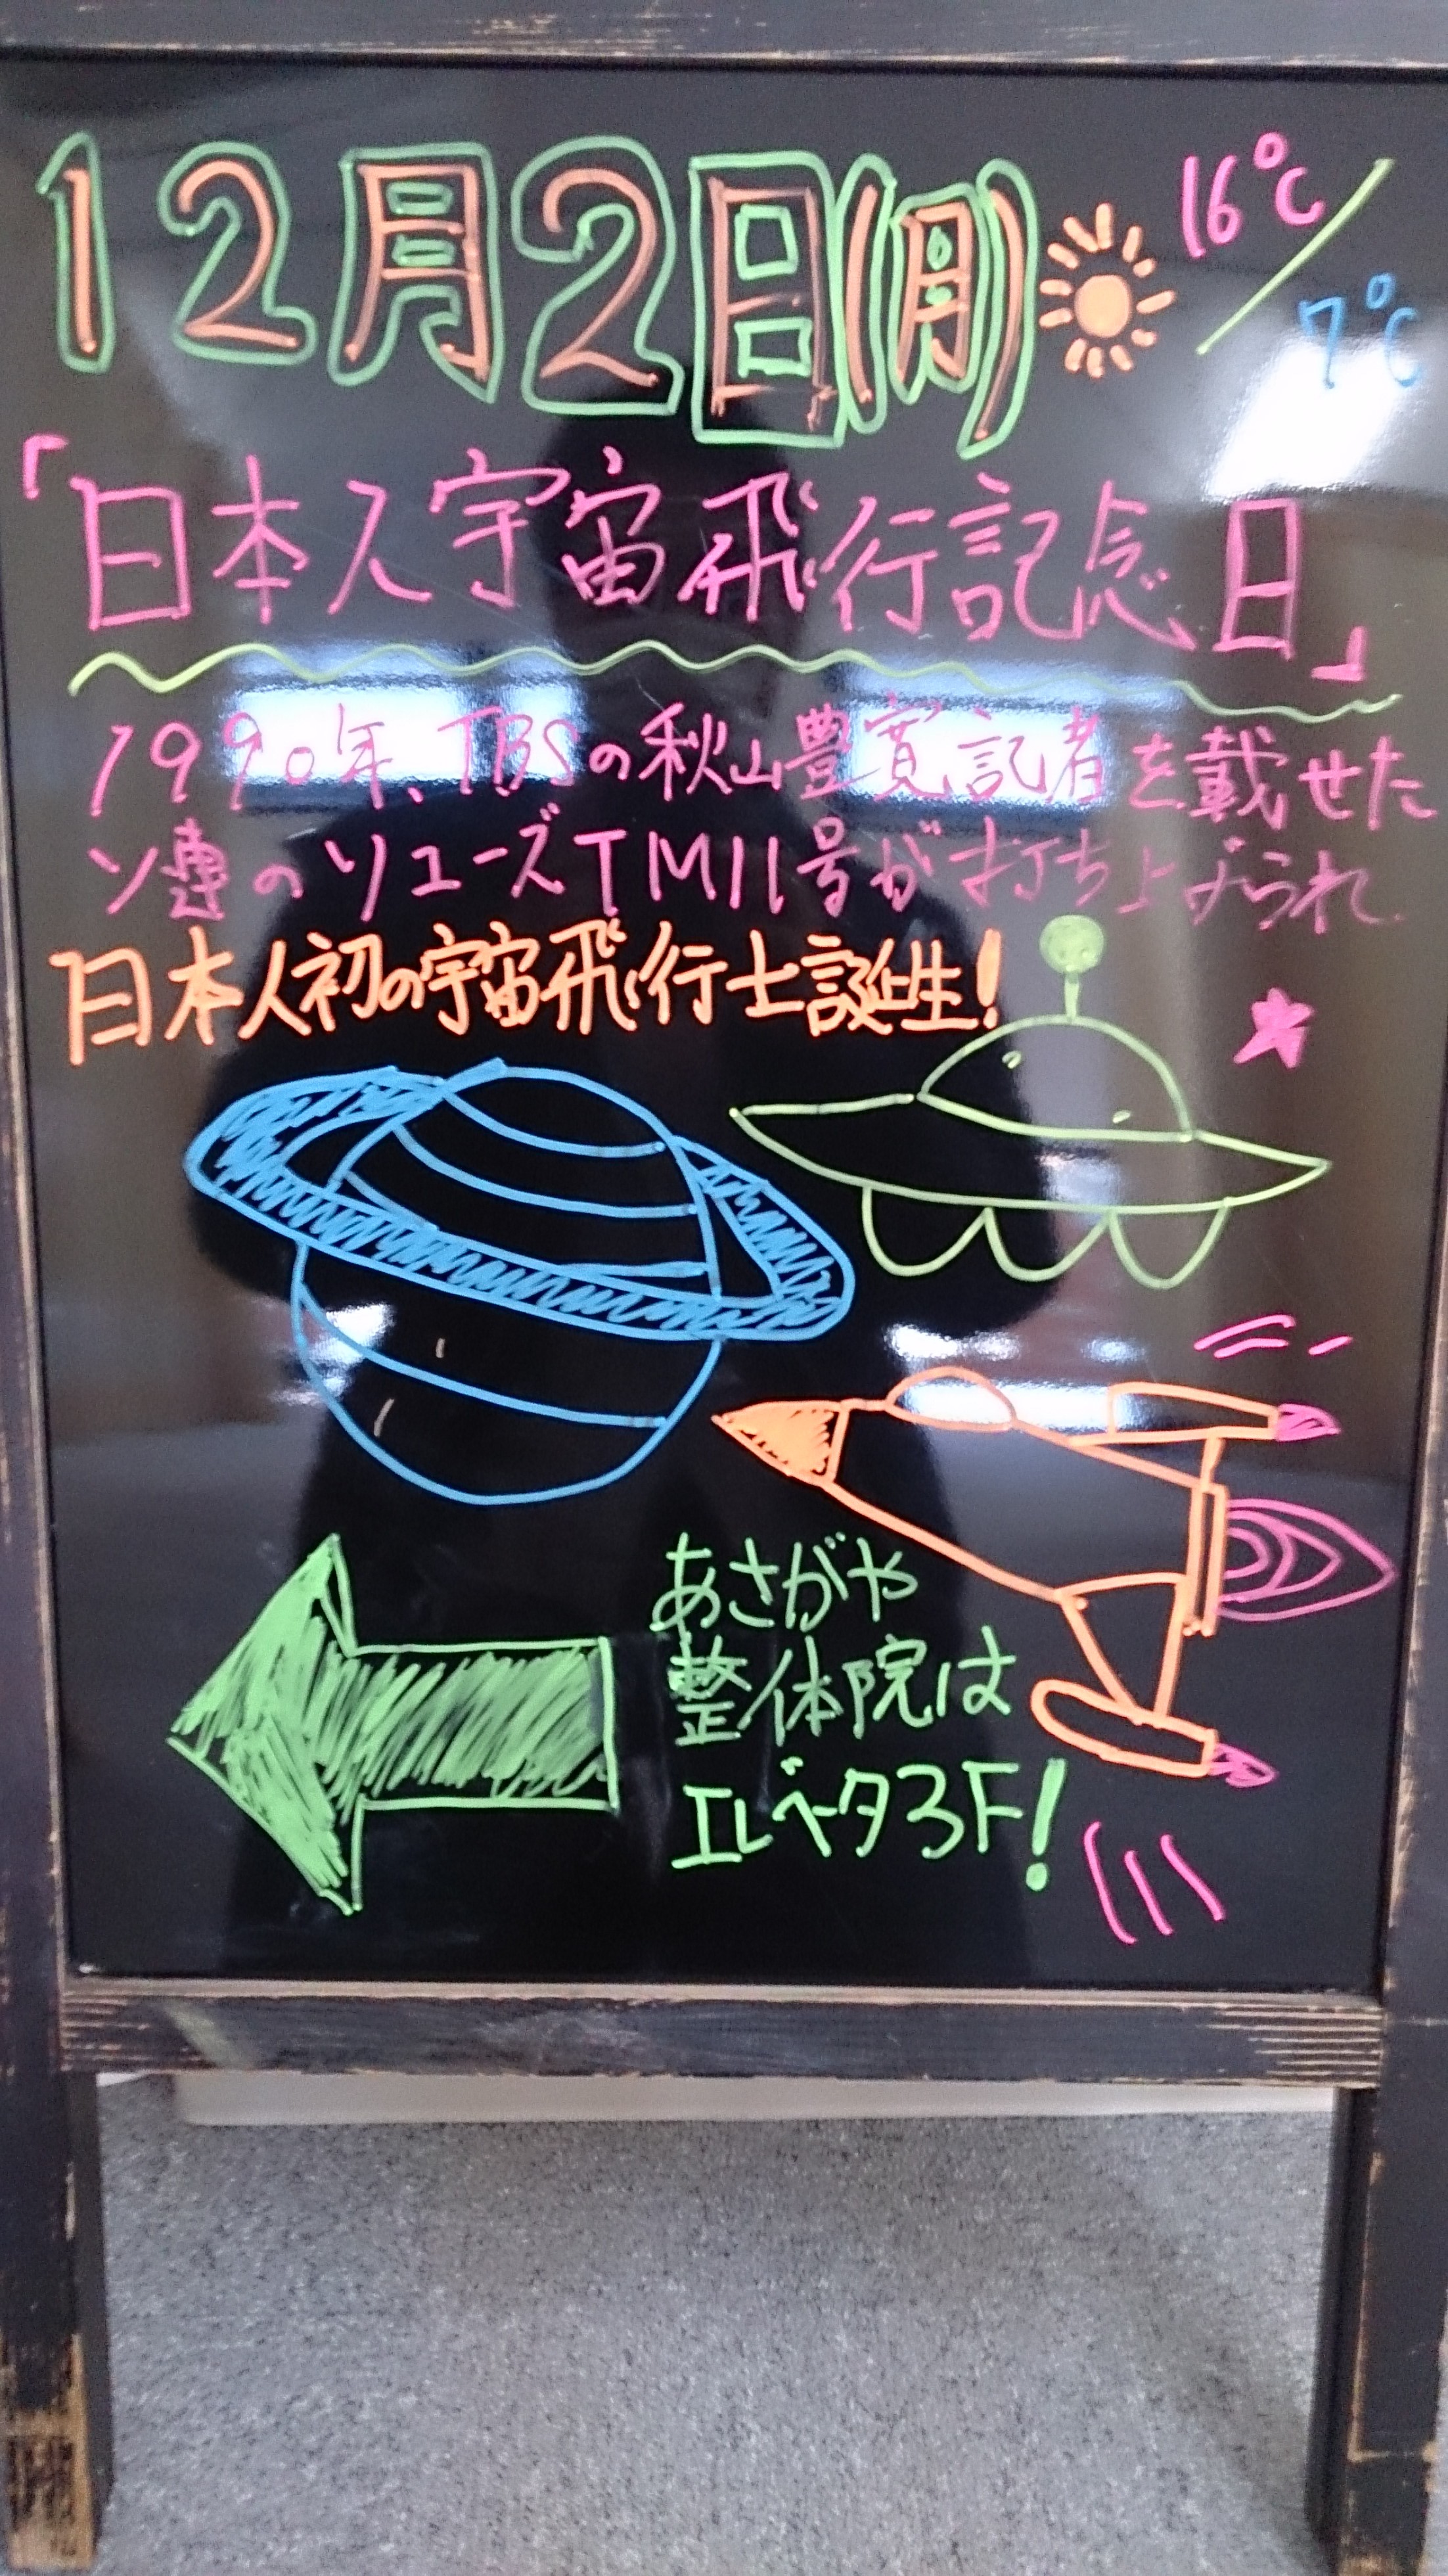 12月2日(月) 16℃/7℃
「日本人宇宙飛行記念日」
1990年、TBSの秋山豊寛記者を載せた
ソ連のソユーズTM11号が打ち上げられ
日本人初の宇宙飛行士誕生!
あさがや
整体院は
エレベータ3F!